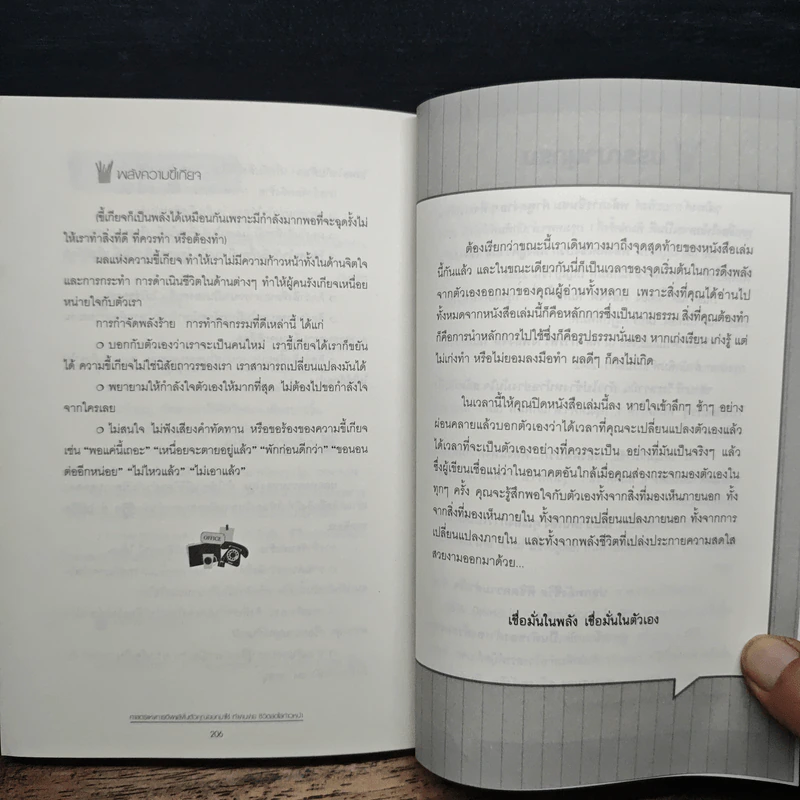 พลังความขี้เกียจ
(ขี้เกียจก็เป็นพลังได้เหมือนกันเพราะมีกำลังมากพอที่จะฉุดรั้งไม่
ให้เราทำสิ่งที่ดี ที่ควรทำ หรือต้องทำ)
ผลแห่งความขี้เกียจ ทำให้เราไม่มีความก้าวหน้าทั้งในด้านจิตใจ
และการกระทำ การดำเนินชีวิตในด้านต่างๆ ทำให้ผู้คนรังเกียจเหนื่อย
หน่ายใจกับตัวเรา
การกำจัดพลังร้าย การทำกิจกรรมที่ดีเหล่านี้ ได้แก่
❍ บอกกับตัวเองว่าเราจะเป็นคนใหม่ เราขี้เกียจได้เราก็ขยัน
ได้ ความขี้เกียจไม่ใช่นิสัยถาวรของเรา เราสามารถเปลี่ยนแปลงมันได้
❍ พยายามให้กำลังใจตัวเองให้มากที่สุด ไม่ต้องไปขอกำลังใจ
จากใครเลย
❍ ไม่สนใจ ไม่ฟังเสียงคำทัดทาน หรือขอร้องของความขี้เกียจ
เช่น "พอแค่นี้เถอะ" "เหนื่อยจะตายอยู่แล้ว" "พักก่อนดีกว่า" "ขอนอน
ต่ออีกหน่อย" "ไม่ไหวแล้ว" "ไม่เอาแล้ว"
OFFICE
206
ต้องเรียกว่าขณะนี้เราเดินทางมาถึงจุดสุดท้ายของหนังสือเล่ม
นี้กันแล้ว และในขณะเดียวกันนี้ก็เป็นเวลาของจุดเริ่มต้นในการดึงพลัง
จากตัวเองออกมาของคุณผู้อ่านทั้งหลาย เพราะสิ่งที่คุณได้อ่านไป
ทั้งหมดจากหนังสือเล่มนี้ก็คือหลักการซึ่งเป็นนามธรรม สิ่งที่คุณต้องทำ
ก็คือการนำหลักการไปใช้ซึ่งก็คือรูปธรรมนั่นเอง หากเก่งเรียน เก่งรู้ แต่
ไม่เก่งทำ หรือไม่ยอมลงมือทำ ผลดีๆ ก็คงไม่เกิด
ในเวลานี้ให้คุณปิดหนังสือเล่มนี้ลง หายใจเข้าลึกๆ ช้าๆ อย่าง
ผ่อนคลายแล้วบอกตัวเองว่าได้เวลาที่คุณจะเปลี่ยนแปลงตัวเองแล้ว
ได้เวลาที่จะเป็นตัวเองอย่างที่ควรจะเป็น อย่างที่มันเป็นจริงๆ แล้ว
ซึ่งผู้เขียนเชื่อแน่ว่าในอนาคตอันใกล้เมื่อคุณส่องกระจกมองตัวเองใน
ทุกๆ ครั้ง คุณจะรู้สึกพอใจกับตัวเองทั้งจากสิ่งที่มองเห็นภายนอก ทั้ง
จากสิ่งที่มองเห็นภายใน ทั้งจากการเปลี่ยนแปลงภายนอก ทั้งจากการ
เปลี่ยนแปลงภายใน และทั้งจากพลังชีวิตที่เปล่งประกายความสดใส
สวยงามออกมาด้วย...
เชื่อมั่นในพลัง เชื่อมั่นในตัวเอง